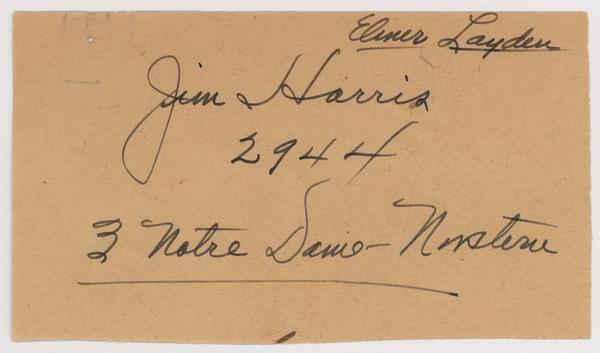 Elmer Layden
Jim Harris
2944
3 Notre Dame-